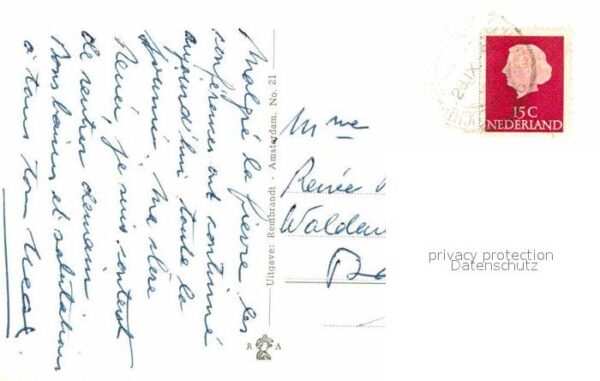 Malgré la fièvre, les
conférences ont continué
aujourd'hui toute la
journée. Ma chère
Renée, je suis content
de rentrer demain
Bons baisers et salutations
à tous ton
Uitgave: Rembrandt - Amsterdam, No. 21
R A
Mme
Renée
Walden
Ba
15C
NEDERLAND
privacy protection
Datenschutz